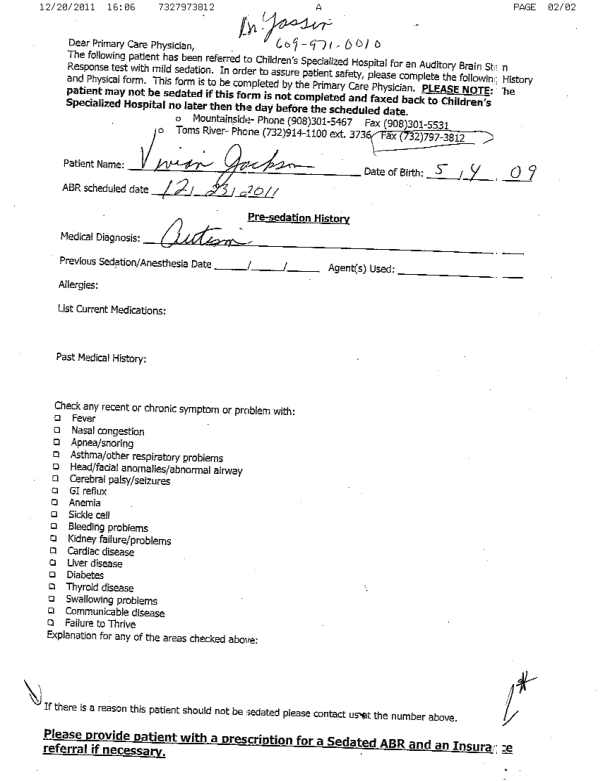 12/20/2011 16:06 7327973812 A PAGE 02/02
Dr. Yasser
609-971-0010
Dear Primary Care Physician,
The following patient has been referred to Children's Specialized Hospital for an Auditory Brain Ste n
Response test with mild sedation. In order to assure patient safety, please complete the following History
and Physical form. This form is to be completed by the Primary Care Physician. PLEASE NOTE: The
patient may not be sedated if this form is not completed and faxed back to Children's
Specialized Hospital no later then the day before the scheduled date.
o Mountainside- Phone (908)301-5467 Fax (908)301-5531
o Toms River- Phone (732)914-1100 ext. 3736 Fax (732)797-3812
Patient Name: Vivian Jackson Date of Birth: 5 / 4 . 09
ABR scheduled date 12 / 23 / 2011
Pre-sedation History
Medical Diagnosis: Autism
Previous Sedation/Anesthesia Date ____/____/____ Agent(s) Used: ____
Allergies:
List Current Medications:
Past Medical History:
Check any recent or chronic symptom or problem with:
☐ Fever
☐ Nasal congestion
☐ Apnea/snoring
☐ Asthma/other respiratory problems
☐ Head/facial anomalies/abnormal airway
☐ Cerebral palsy/seizures
☐ GI reflux
☐ Anemia
☐ Sickle cell
☐ Bleeding problems
☐ Kidney failure/problems
☐ Cardiac disease
☐ Liver disease
☐ Diabetes
☐ Thyroid disease
☐ Swallowing problems
☐ Communicable disease
☐ Failure to Thrive
Explanation for any of the areas checked above:
If there is a reason this patient should not be sedated please contact us at the number above.
Please provide patient with a prescription for a Sedated ABR and an Insurance
referral if necessary.